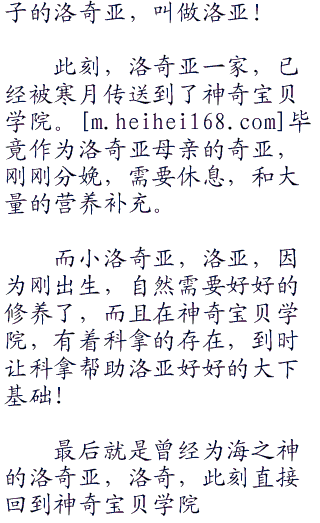 子的洛奇亚，叫做洛亚！
此刻，洛奇亚一家，已
经被寒月传送到了神奇宝贝
学院。[m.heihei168.com]毕
竟作为洛奇亚母亲的奇亚，
刚刚分娩，需要休息，和大
量的营养补充。
而小洛奇亚，洛亚，因
为刚出生，自然需要好好的
修养了，而且在神奇宝贝学
院，有着科拿的存在，到时
让科拿帮助洛亚好好的大下
基础！
最后就是曾经为海之神
的洛奇亚，洛奇，此刻直接
回到神奇宝贝学院